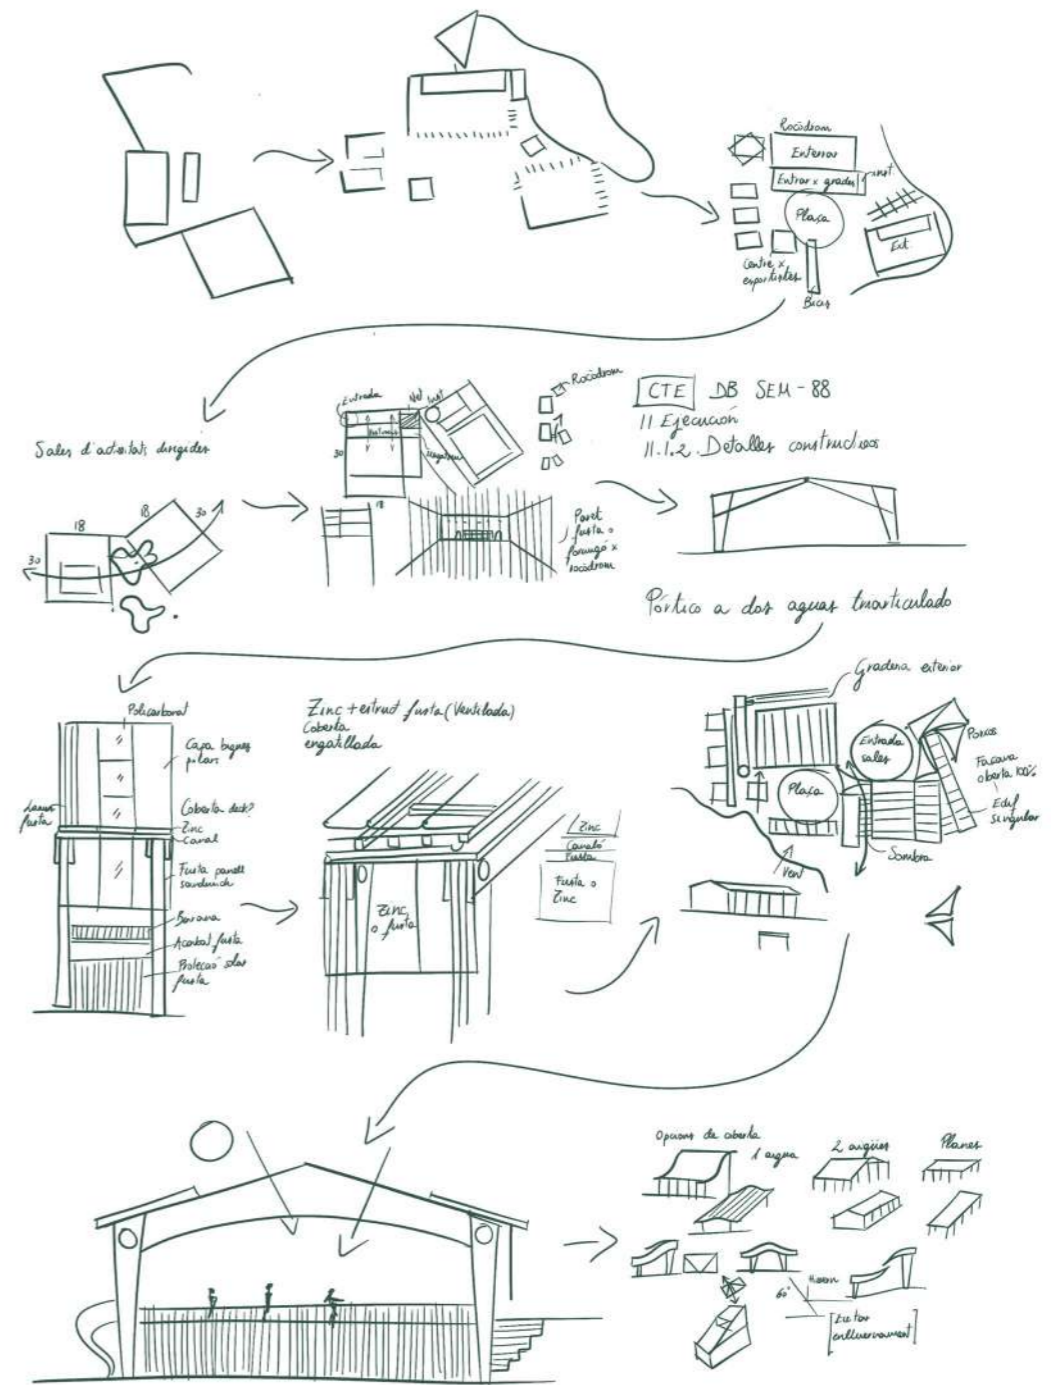 Rocòdrom
Enterrar
Entrar x grades
inst.
Plaça
Ext
Centre x
esportistes
Bicis
Sales d'activitats dirigides
18
18
30
30
Entrada
Inst
30
18
Rocòdrom
Paret
fusta o
formigó x
rocòdrom
CTE DB SEM - 88
11 Ejecución
11.1.2. Detalles constructivos
Pórtico a dos aguas triarticulado
Policarbonat
Capa bigues
pilars
Coberta deck?
Zinc
Canal
fusta
Fusta panell
sandwich
Barana
Acabat fusta
Protecció solar
fusta
Zinc + estruct fusta (Ventilada)
Coberta
engatillada
Zinc
o fusta
Zinc
Canaló
Fusta
Fusta o
Zinc
Graderia exterior
Entrada
sales
Porxos
Façana
oberta 100%
Edif
singular
Plaça
Sombra
Vent
Opcions de coberta
1 aigua
2 aigües
Planes
60°
Hivern
[Evitar
enlluernament]